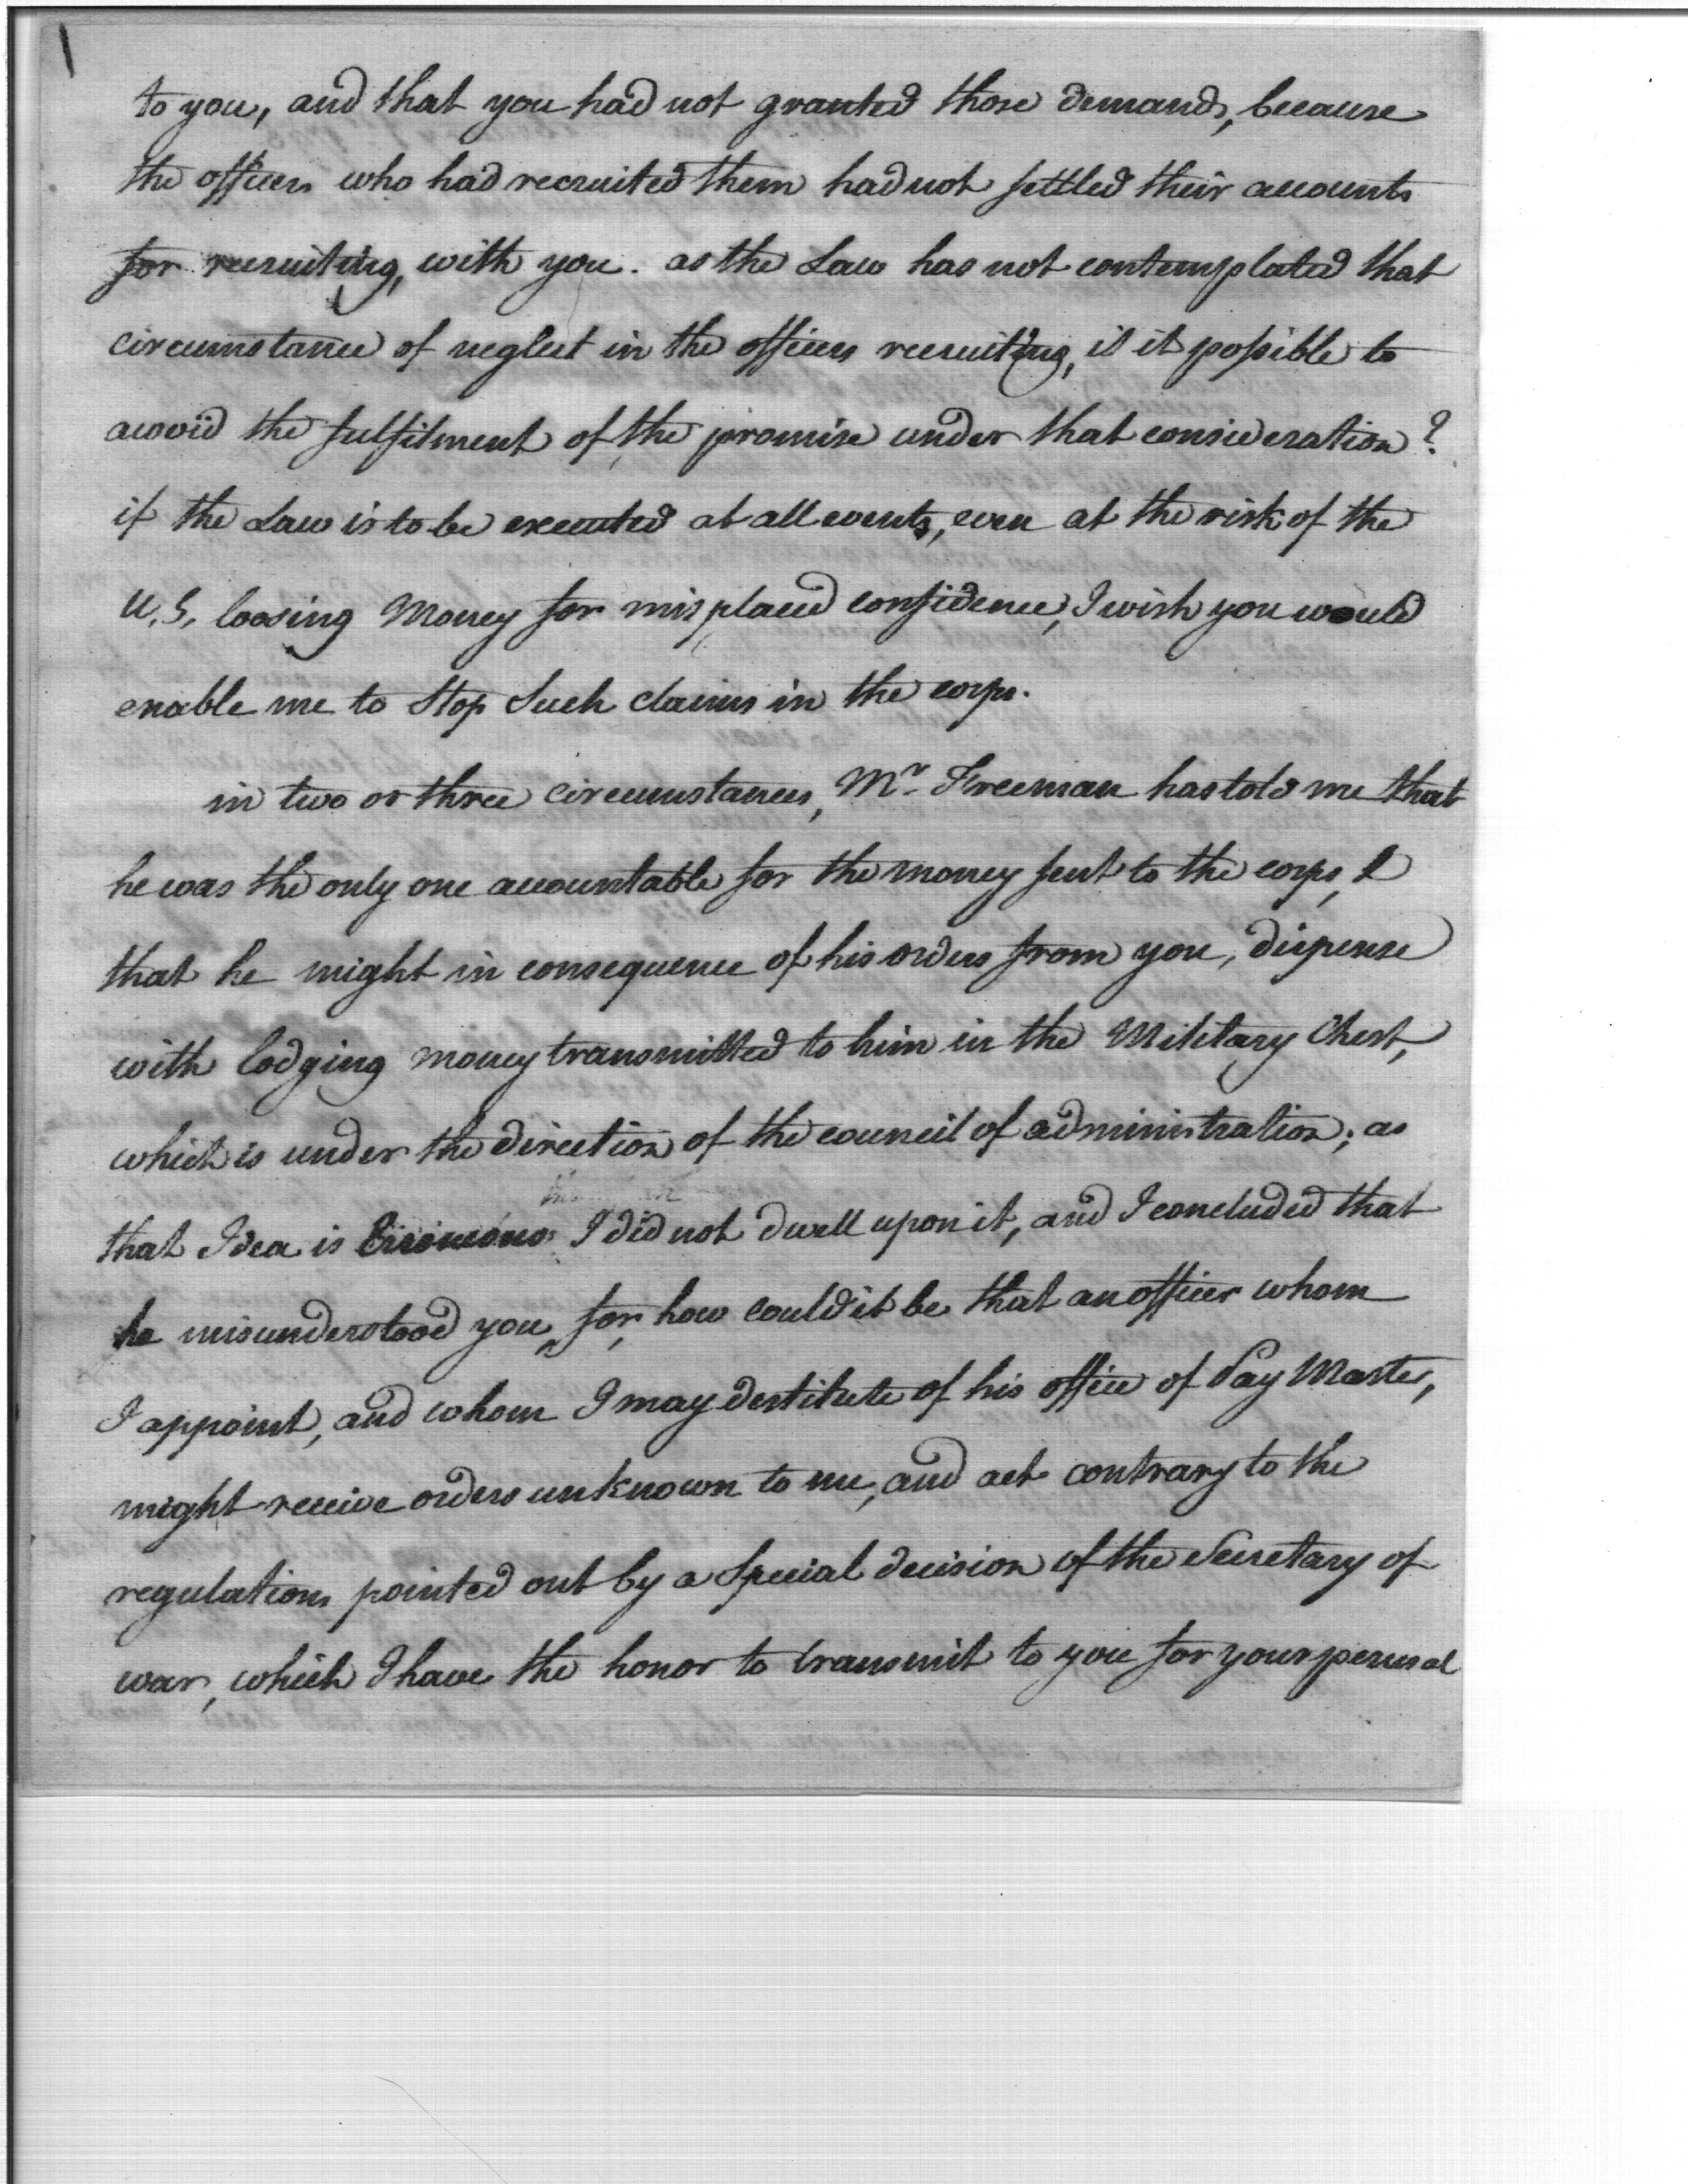 to you, and that you had not granted those demands, because
the officers who had recruited them had not settled their accounts
for recruiting, with you. as the Law has not contemplated that
circumstance of neglect in the officers recruiting, is it possible to
avoid the fulfilment of the promise under that consideration?
if the Law is to be executed at all events, even at the risk of the
U.S. loosing Money for misplaced confidence, I wish you would
enable me to Stop Such claims in the corps.
in two or three circumstances, Mr Freeman has told me that
he was the only one accountable for the money sent to the corps, &
that he might in consequence of his orders from you, dispense
with lodging money transmitted to him in the Military Chest,
which is under the direction of the council of administration; as
that Idea is I did not dwell upon it, and I concluded that
he misunderstood you, for, how could it be that an officer whom
I appoint, and whom I may destitute of his office of Pay Master,
might receive orders unknown to me, and act contrary to the
regulations pointed out by a Special decision of the Secretary of
war, which I have the honor to transmit to you for your perusal